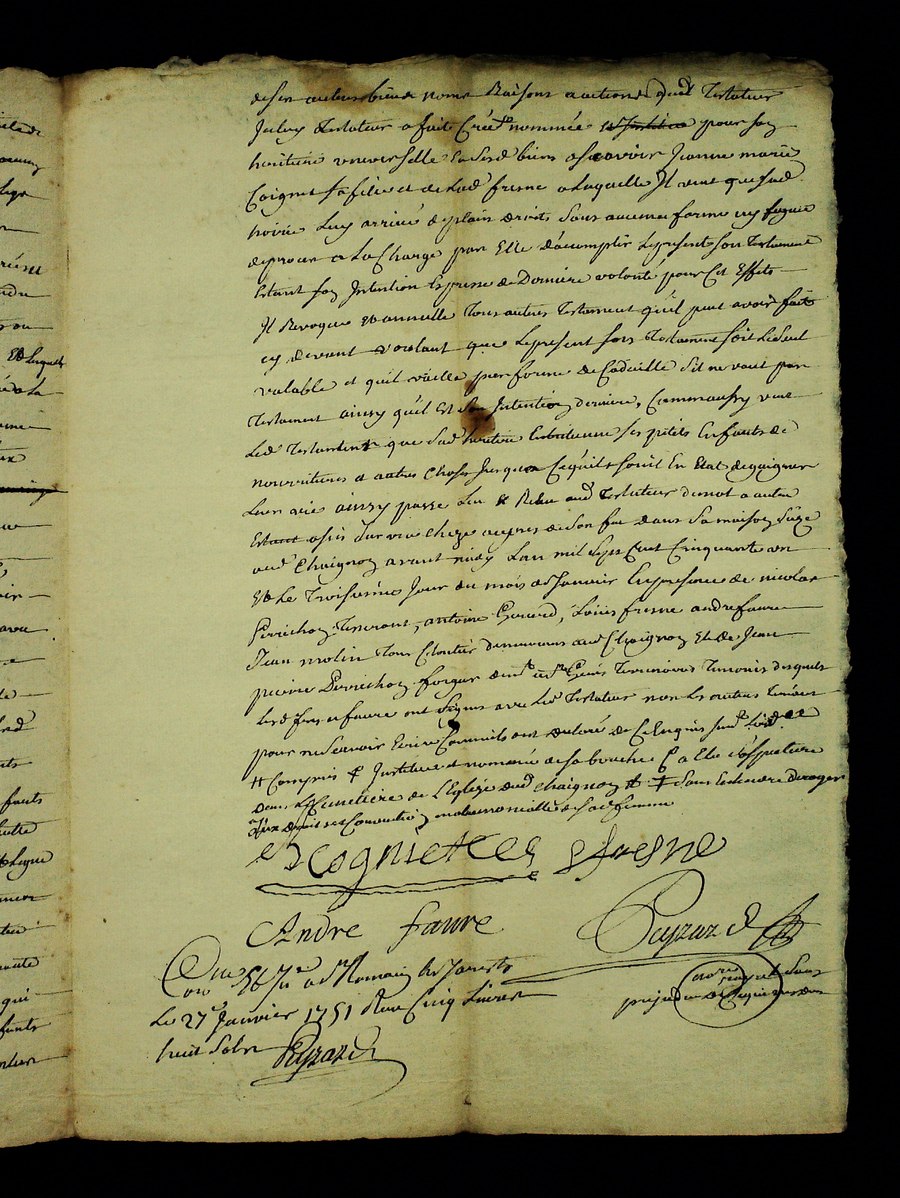 de ses autres biens noms Raisons actions ledt Testateur
Testateur a fait Créé nommée pour son
heritiere universelle En sesd biens a scavoir Jeanne marie
Coignet sa fille et de lad fresne a laquelle Il veut que sad
hoirie Luy arrive de plain droit Sans aucune forme ny figure
de proces a La Charge par Elle d'acomplir Le present son Testament
Estant son Intention Expresse de Derniere volonté pour Cet Effet
Il Revoque Et annulle Tous autres Testament qu'il peut avoir fait
cy devant voulant que Le present son Testament soit Le seul
valable et quil vaille par forme de Codicille S'il ne vaut par
Testament ainsy qu'il Est son Intention derniere, Comm aussy veut
Led Testateur que sad heritiere Entretienne ses petits Enfants de
nourriture et autres Choses Jusqua Ce quils soint En Etat de gaigner
Leur vie ainsy passé Leu & Relu aud Testateur de mot a autre
Estant assis sur une Chaize aupres de son feu dans sa maison Size
aud Chaignon avant midy Lan mil sept Cent Cinquante un
Et Le Troisieme Jour du mois de Janvier En presence de nicolas
Perrichon, antoine Louis fresne andre faure
Jean molin Tous Cloutier demeurans aud Chaignon Et de Jean
pierre Perrichon forgeur Temoins desquels
Lesd fresne faure ont Signé avec Led Testateur non Les autres
pour ne Scavoir Ecrire Comm'ils ont declaré de Ce Enquis
Compris Instituée et nommée de sa bouche
dans Le Cimetiere de L'Eglise dud Chaignon Sans Entendre deroger
aux droits et Conventions matrimonialles de sad femme
Cogniet L fresne
Andre faure
Peyrard
Con a St Romain
Le 27e Janvier 1751 Reçu Cinq Livres
huit Sols Peyrard
Sans
prejudice